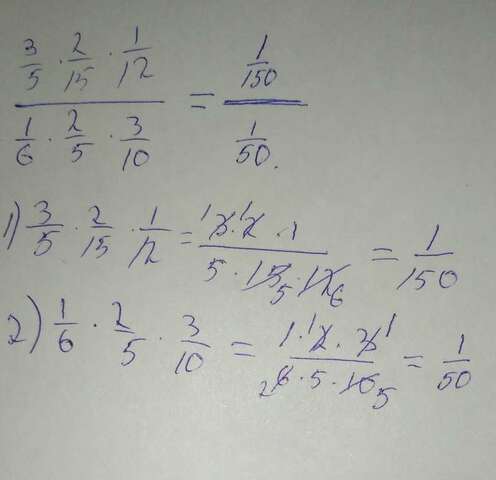 3/5 · 2/15 · 1/12 / 1/6 · 2/5 · 3/10 = 1/150 / 1/50.
1) 3/5 · 2/15 · 1/12 = 3·2·1 / 5·15·12 = 1/150
2) 1/6 · 2/5 · 3/10 = 1·2·3 / 6·5·10 = 1/50